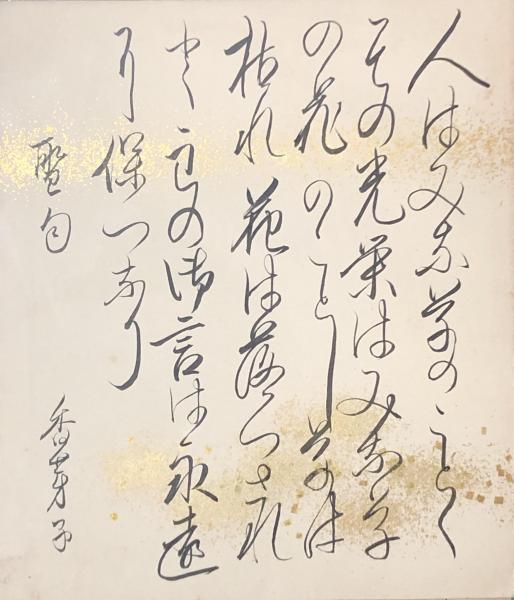 人はみな草のことく
その光栄はみな草
の花のことし草は
枯れ花は落つされ
と主の御言は永遠
に保つなり
聖句
香芽子